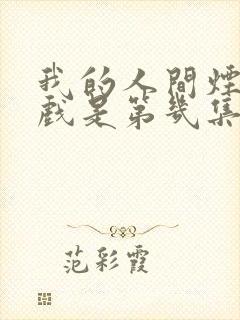 我的人間煙
戲是第幾集
范彩霞